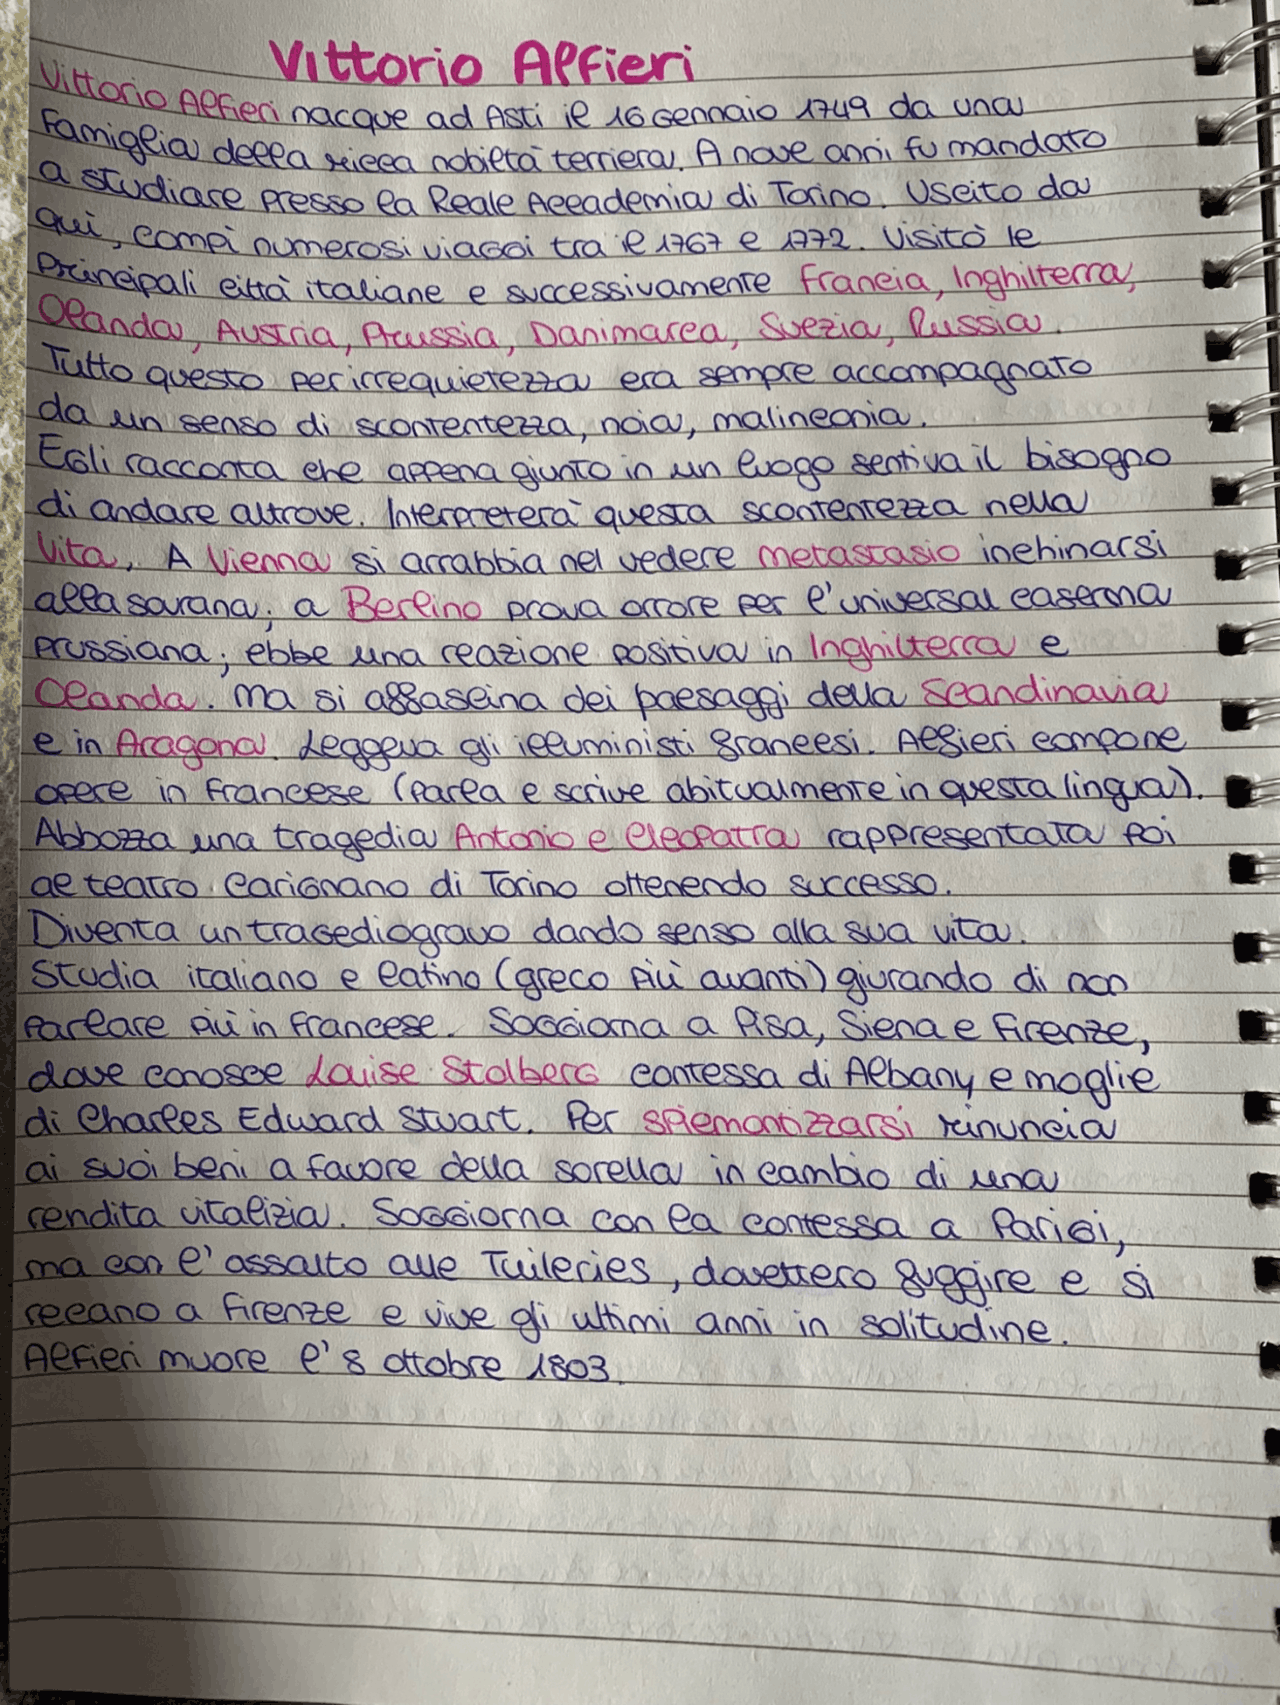 Vittorio Alfieri
Vittorio Alfieri nacque ad Asti il 16 Gennaio 1749 da una
Famiglia della ricca nobiltà terriera. A nove anni fu mandato
a studiare presso la Reale Accademia di Torino. Uscito da
qui, compì numerosi viaggi tra il 1767 e 1772. Visitò le
Principali città italiane e successivamente Francia, Inghilterra,
Olanda, Austria, Prussia, Danimarca, Svezia, Russia.
Tutto questo per irrequietezza era sempre accompagnato
da un senso di scontentezza, noia, malinconia.
Egli racconta che appena giunto in un luogo sentiva il bisogno
di andare altrove. Interpreterà questa scontentezza nella
Vita. A Vienna si arrabbia nel vedere metastasio inchinarsi
alla sovrana; a Berlino prova orrore per l'universal caserma
prussiana; ebbe una reazione positiva in Inghilterra e
Olanda. Ma si affascina dei paesaggi della Scandinavia
e in Aragona. Leggeva gli illuministi francesi. Alfieri compone
opere in francese (parla e scrive abitualmente in questa lingua).
Abbozza una tragedia Antonio e Cleopatra rappresentata poi
al teatro Carignano di Torino ottenendo successo.
Diventa un tragediografo dando senso alla sua vita.
Studia italiano e latino (greco più avanti) giurando di non
parlare più in francese. Soggiorna a Pisa, Siena e Firenze,
dove conosce Louise Stolberg contessa di Albany e moglie
di Charles Edward Stuart. Per spiemontizzarsi rinuncia
ai suoi beni a favore della sorella in cambio di una
rendita vitalizia. Soggiorna con la contessa a Parigi,
ma con l'assalto alle Tuileries, dovettero fuggire e si
recano a Firenze e vive gli ultimi anni in solitudine.
Alfieri muore l'8 ottobre 1803.